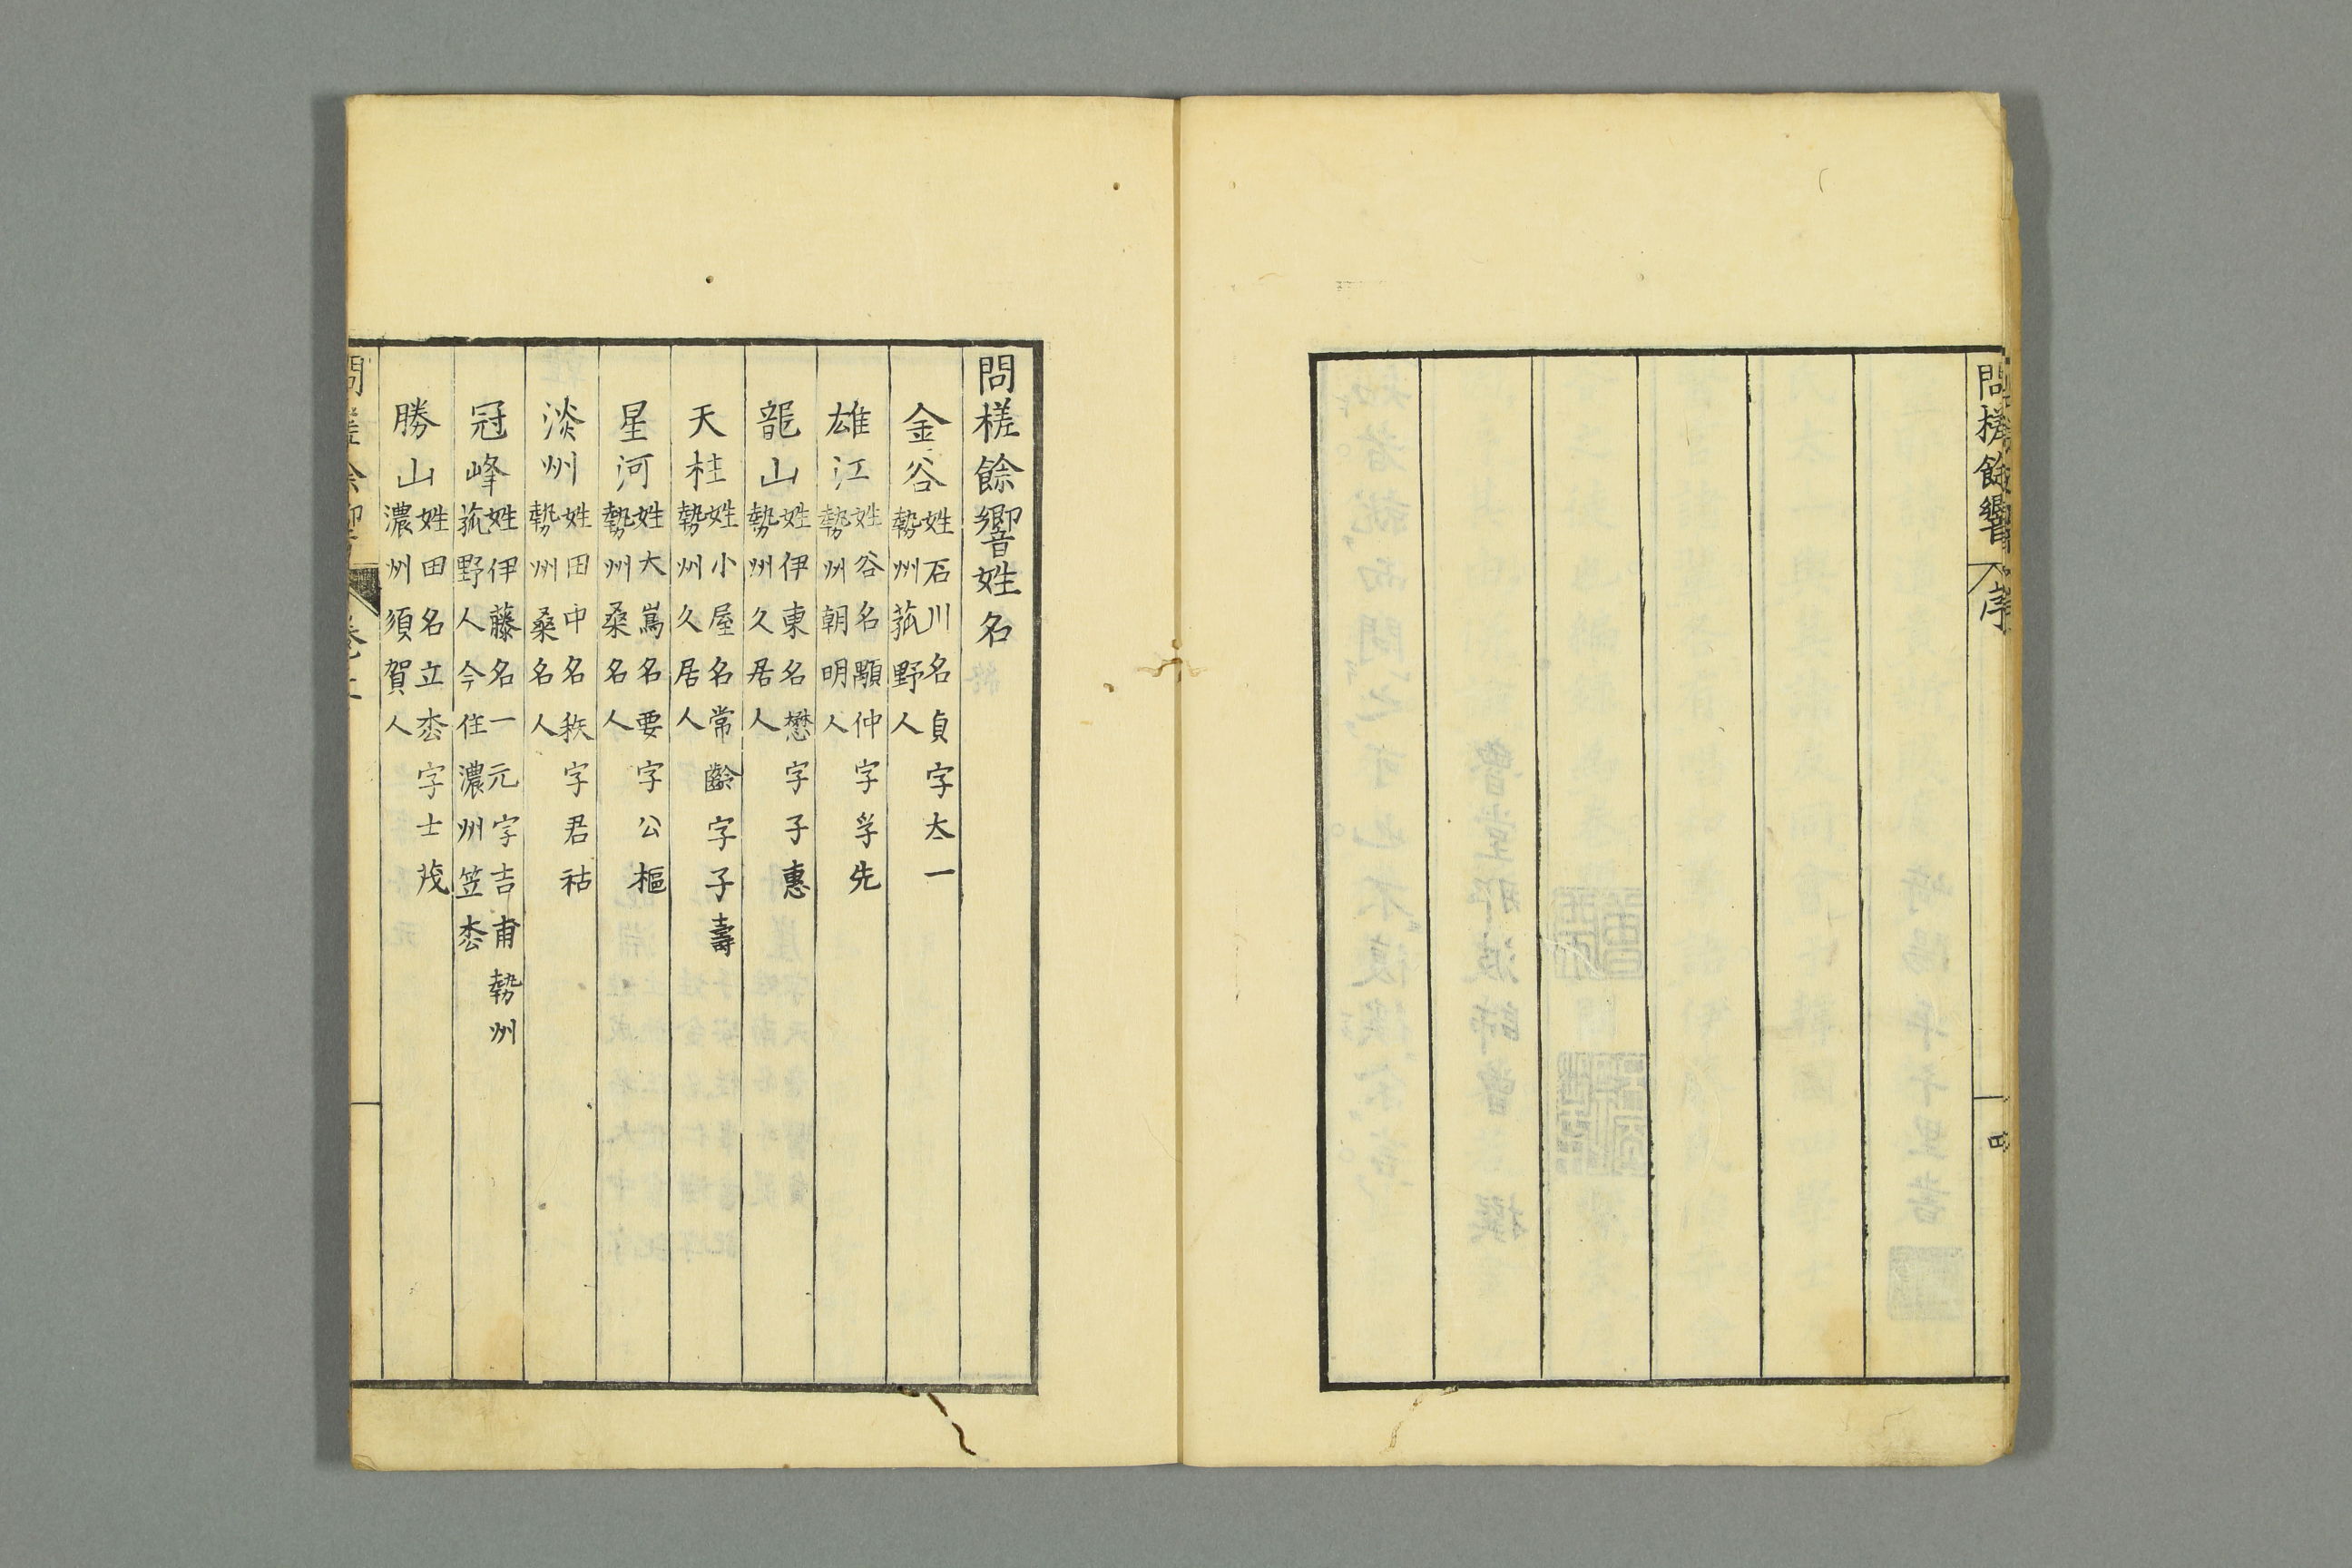 問槎餘響 序
四
問槎餘響姓名
金谷 姓石川名貞字太一
勢州菰野人
雄江 姓谷名顒仲字孚先
勢州朝明人
龍山 姓伊東名懋字子惠
勢州久居人
天桂 姓小屋名常齡字子壽
勢州久居人
星河 姓大嶌名要字公樞
勢州桑名人
淡州 姓田中名秩字君祜
勢州桑名人
冠峰 姓伊藤名一元字吉甫勢州
菰野人今住濃州笠枩
勝山 姓田名立枩字士茂
濃州須賀人
問槎餘響 卷上